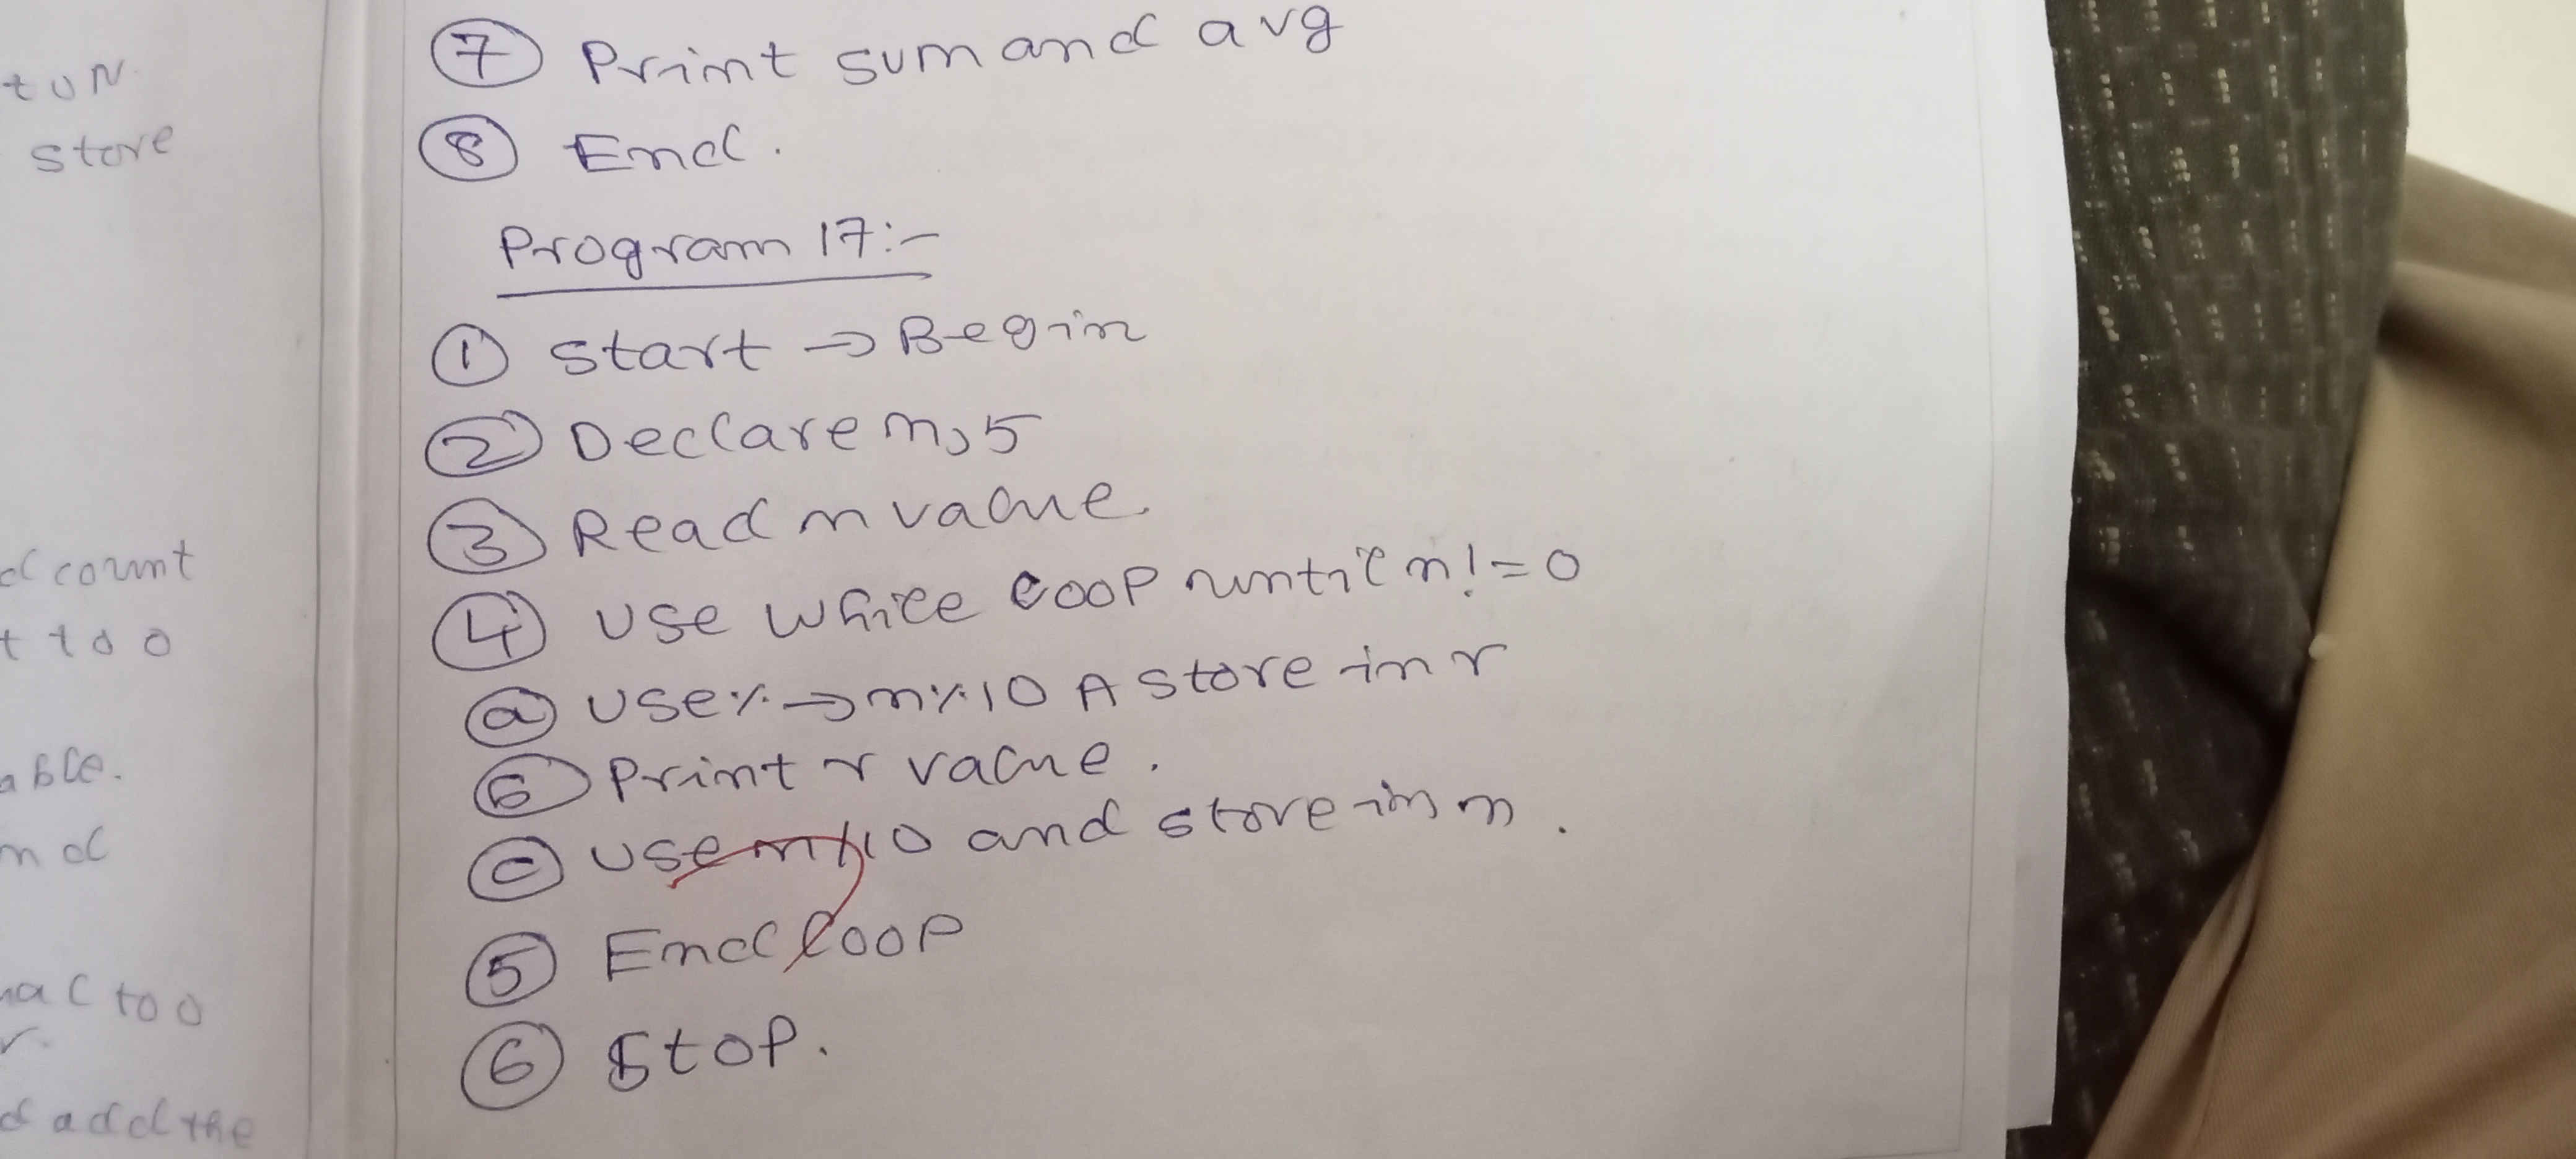 to N
store
d count
t to 0
able.
nd
nal to 0
r.
d add the
⑦ Print sum and avg
⑧ End.
Program 17:-
① start → Begin
② Declare n, 5
③ Read n value.
④ Use while loop until n! = 0
ⓐ Use % → n%10 A store in r
ⓑ Print r value.
ⓒ Use n/10 and store in n.
⑤ End loop
⑥ Stop.